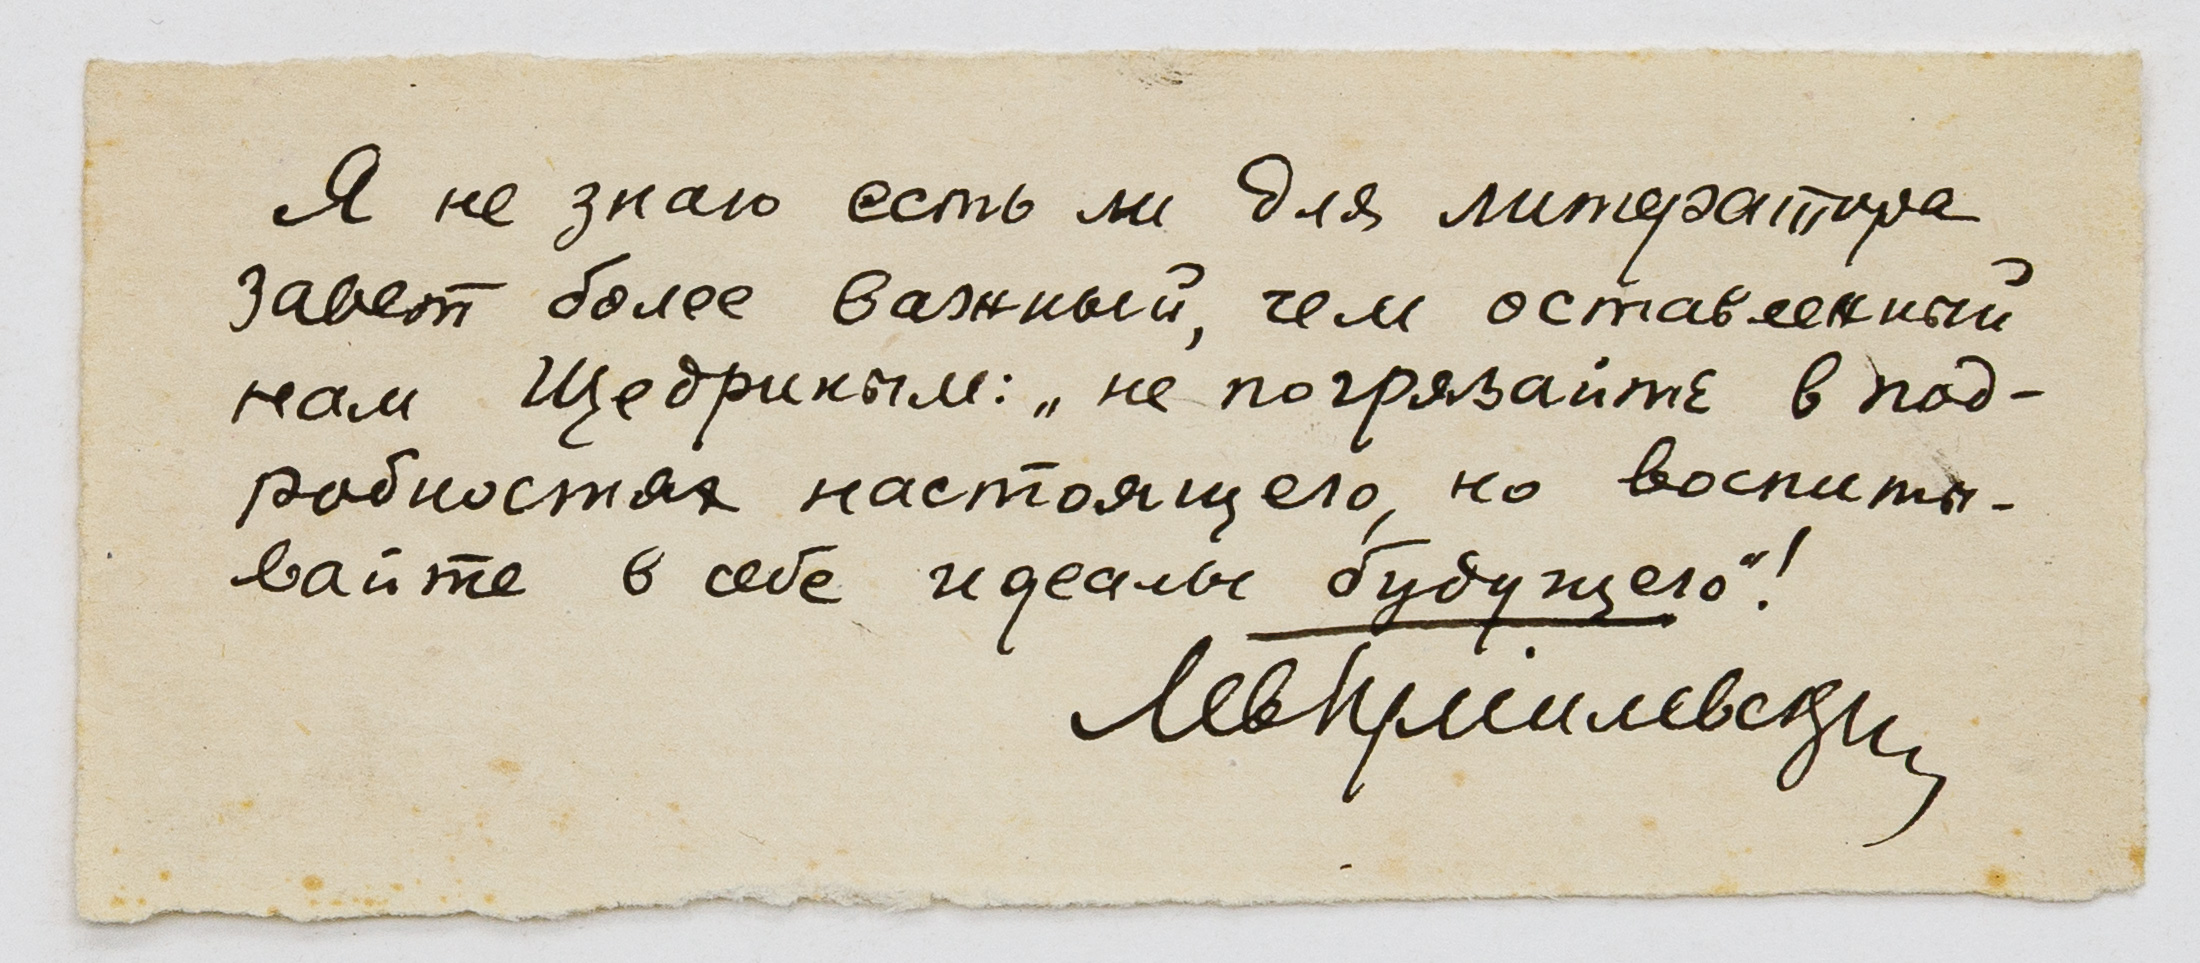 Я не знаю есть ли для литератора
завет более важный, чем оставленный
нам Щедриным: „не погрязайте в под-
робностях настоящего, но воспиты-
вайте в себе идеалы будущего“!
Лев